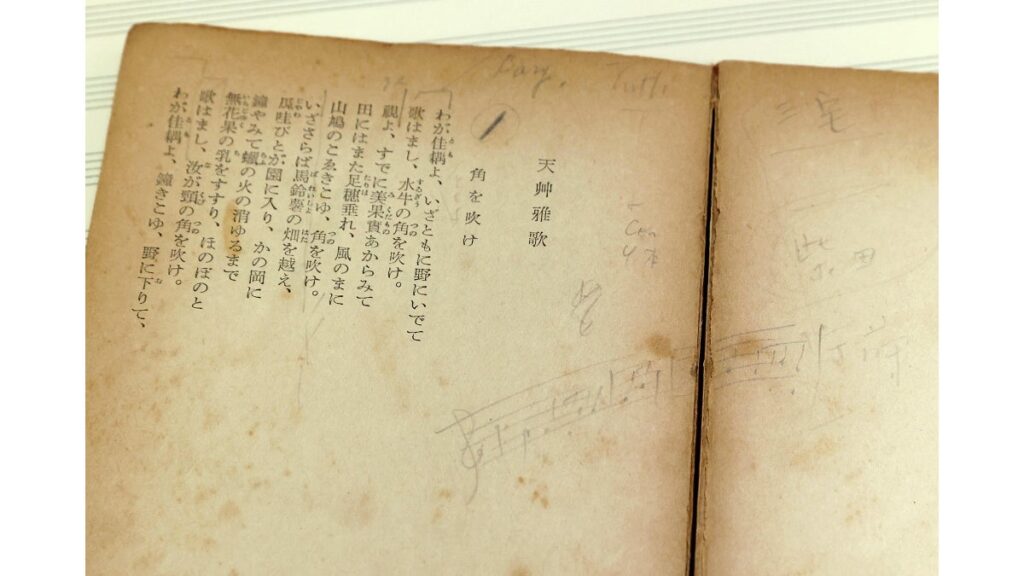 三宅
柴田
天艸雅歌
角を吹け
1
わが佳耦よ、いざともに野にいでて
歌はまし、水牛の角を吹け。
視よ、すでに美果實あからみて
田にはまた足穗垂れ、風のまに
山鳩のこゑきこゆ、角を吹け。
いざさらば馬鈴薯の畑を越え、
瓜哇びとが園に入り、かの岡に
鐘やみて蠟の火の消ゆるまで
無花果の乳をすすり、ほのぼのと
歌はまし、汝が頸の角を吹け。
わが佳耦よ、鐘きこゆ、野に下りて、